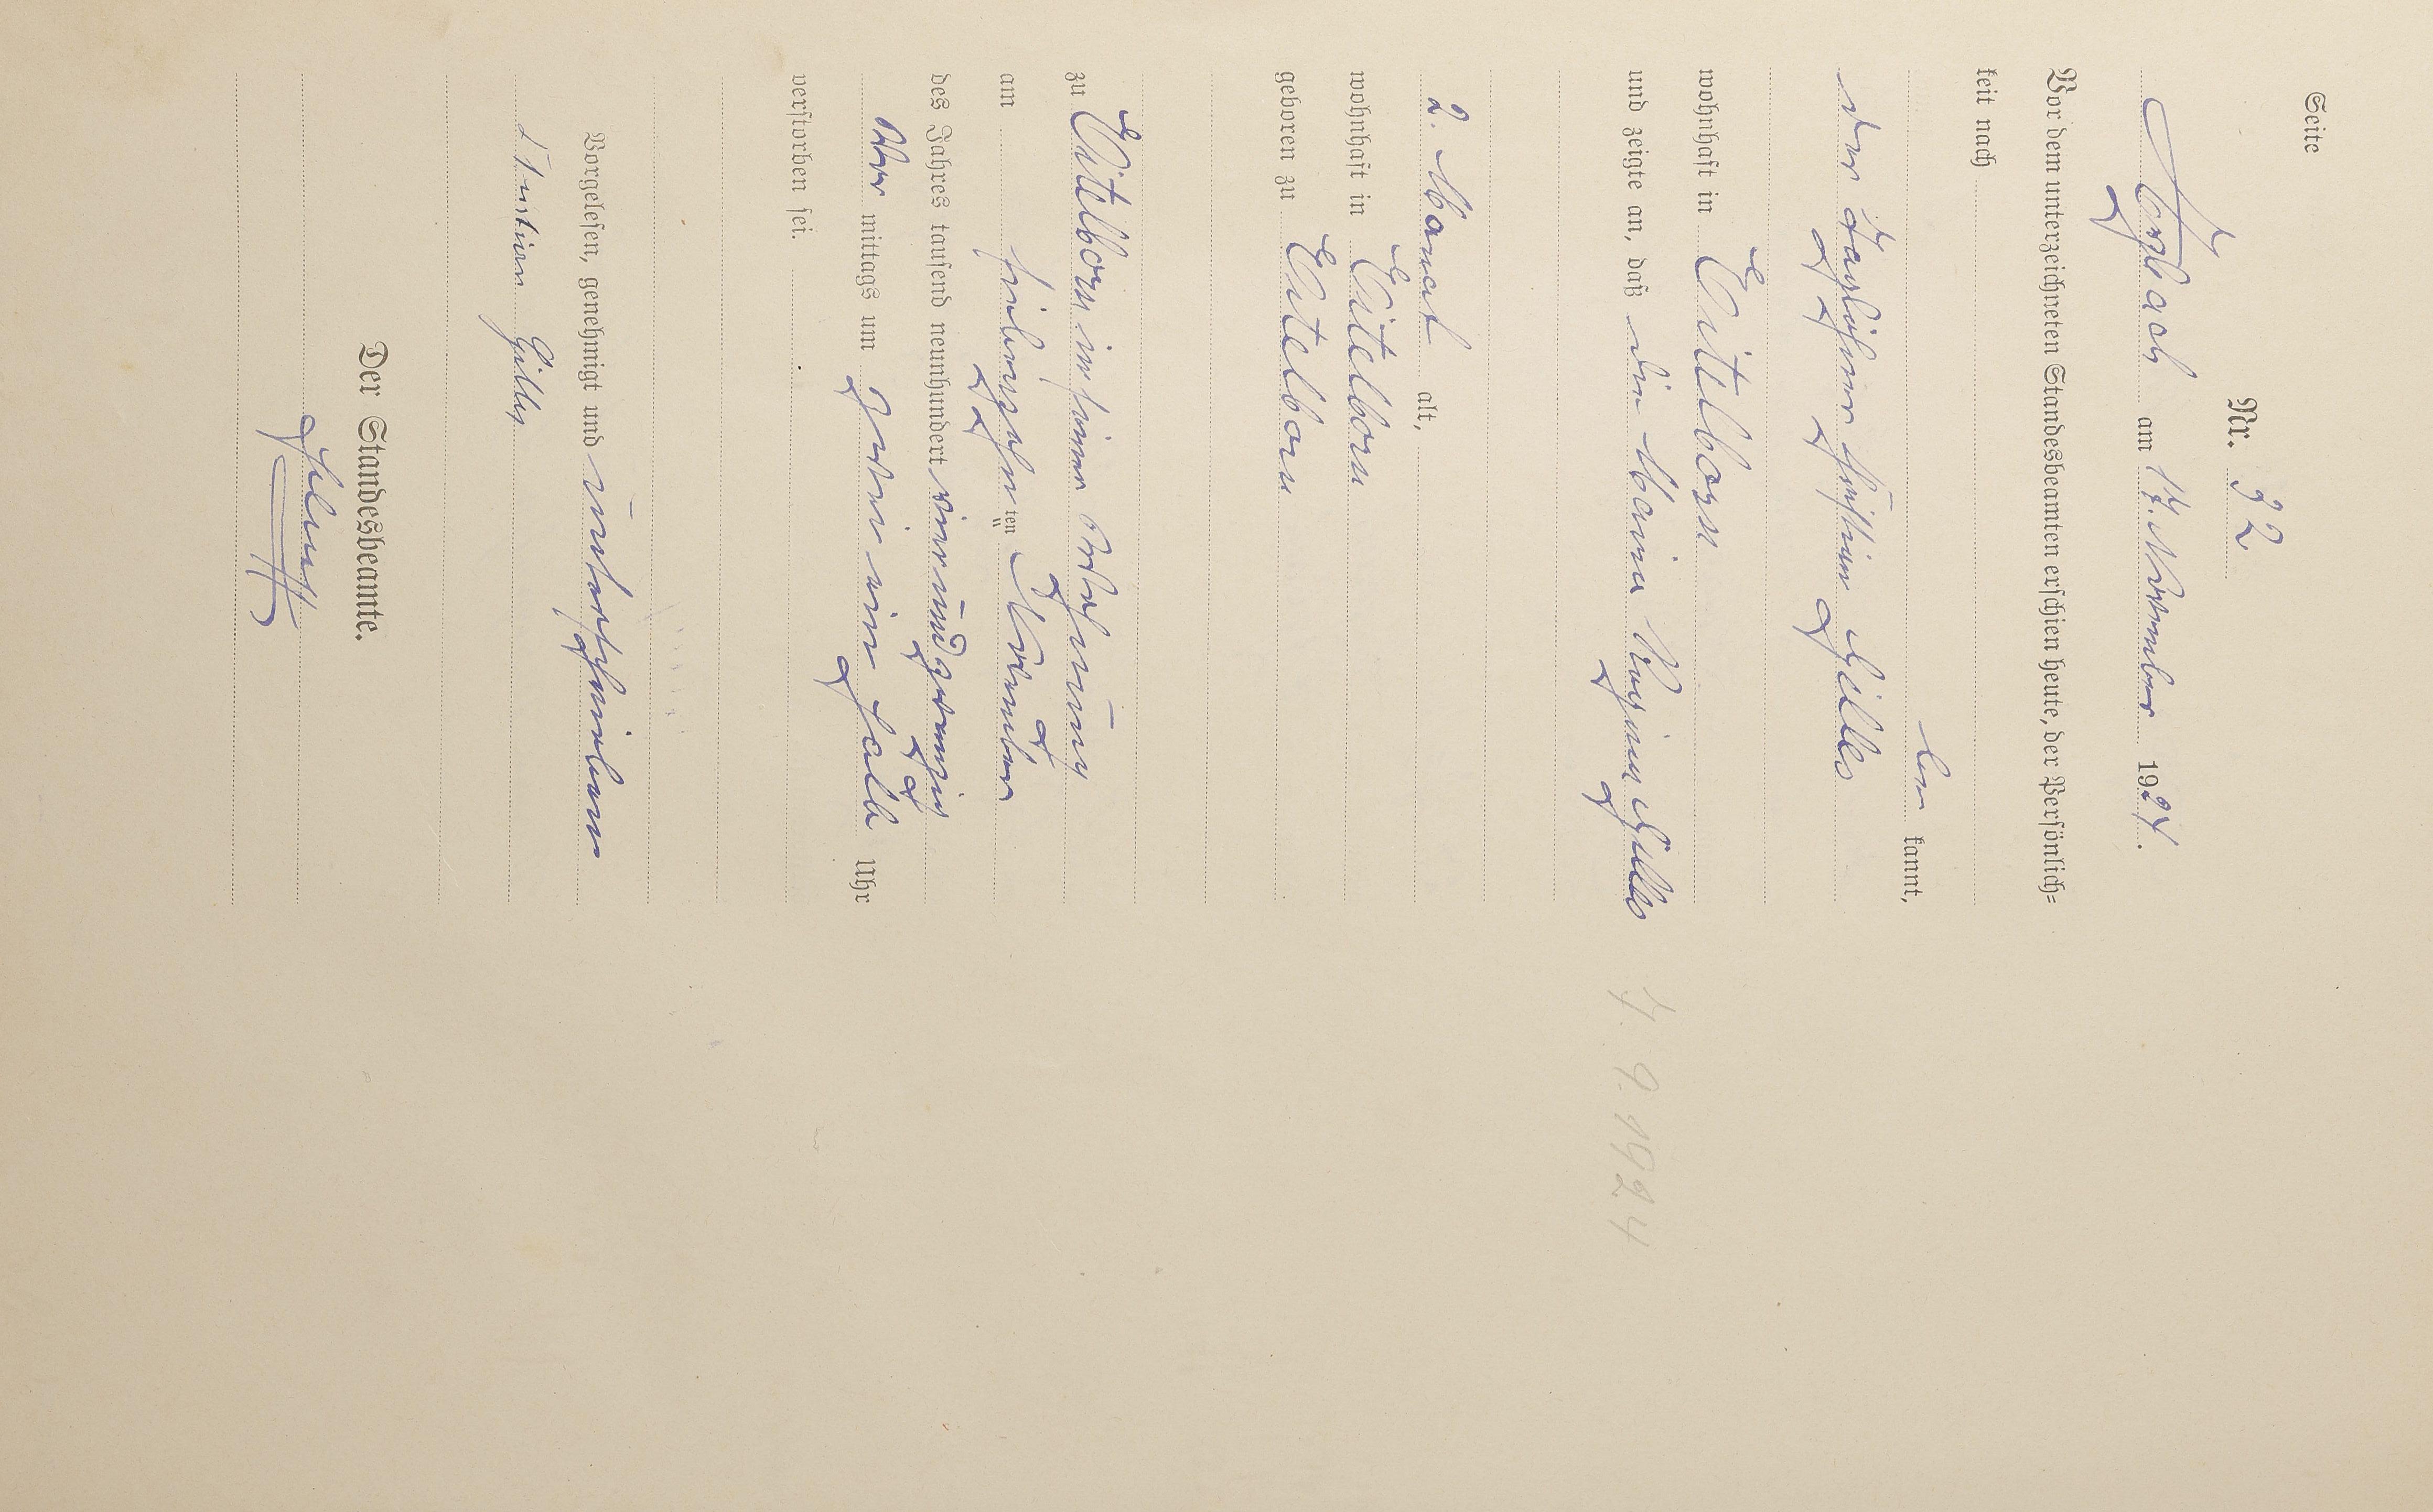 Seite
Nr. 32
Arzbach am 17. November 1924.
Vor dem unterzeichneten Standesbeamten erschien heute, der Persönlich=
keit nach
be kannt,
der Taglöhner Gilles
wohnhaft in Eitelborn
und zeigte an, daß die Maria Gilles
4. 9. 1924
2. Monat alt,
wohnhaft in Eitelborn
geboren zu Eitelborn
zu Eitelborn in seiner Wohnung
am siebenzehnten November
des Jahres tausend neunhundert vierundzwanzig
mittags um zwei ein halb Uhr
verstorben sei.
Vorgelesen, genehmigt und unterschrieben
Gilles
Der Standesbeamte.